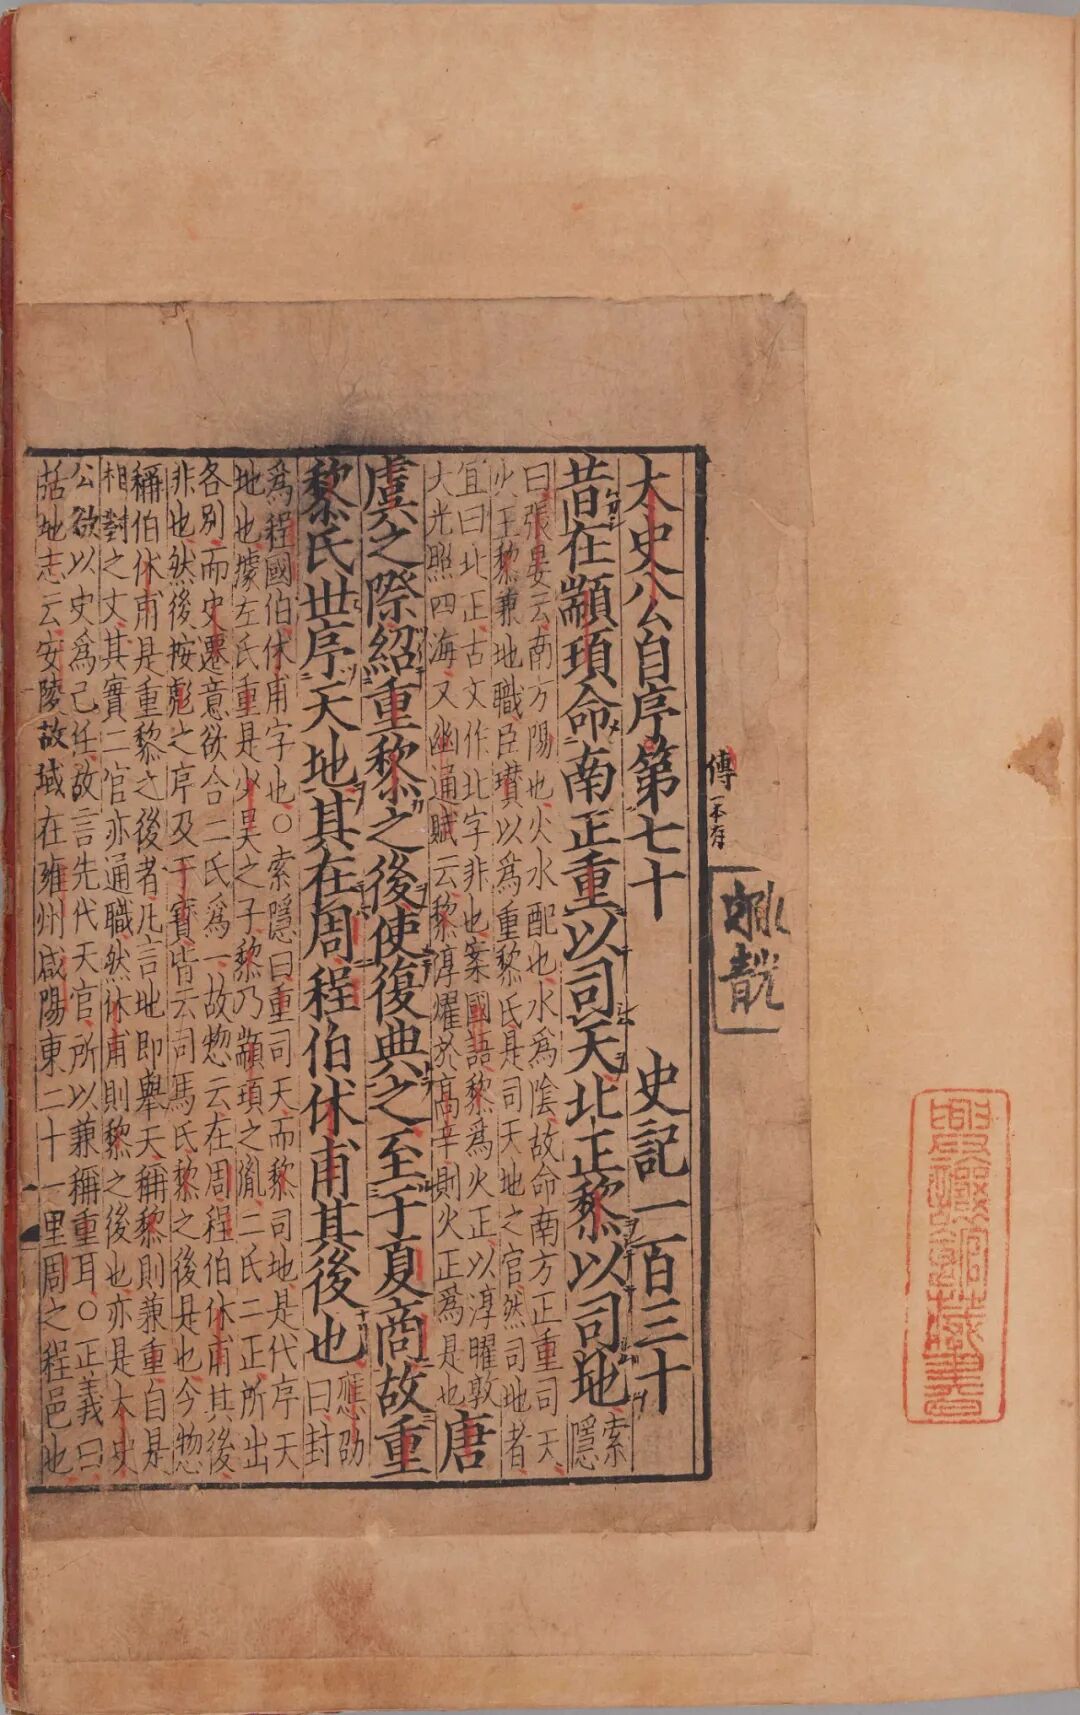 太史公自序第七十　史記一百三十
昔在顓頊命南正重以司天北正黎以司地 索隱
曰張晏云南方陽也火水配也水爲陰故命南方正重司天
火王黎兼地職臣瓚以爲重黎氏是司天地之官然司地者
宜曰北正古文作北字非也案國語黎爲火正以淳曜敦
大光照四海又幽通賦云黎淳耀於高辛則火正爲是也
唐
虞之際紹重黎之後使復典之至于夏商故重
黎氏世序天地其在周程伯休甫其後也 應劭曰封
爲程國伯休甫字也○索隱曰重司天而黎司地是代序天
地也據左氏重是少昊之子黎乃顓頊之胤二氏二正所出
各別而史遷意欲合二氏爲一故惣云在周程伯休甫其後
非也然後按彪之序及干寶皆云司馬氏黎之後是也今惣
稱伯休甫是重黎之後者凡言地即舉天稱黎則兼重自是
相對之文其實二官亦通職然休甫則黎之後也亦是太史
公欲以史爲己任故言先代天官所以兼稱重耳○正義曰
括地志云安陵故城在雍州咸陽東二十一里周之程邑也
傳一本有